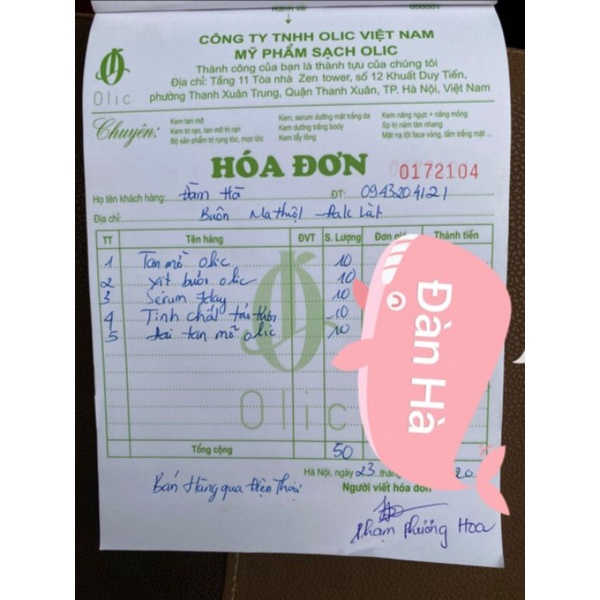 CÔNG TY TNHH OLIC VIỆT NAM
MỸ PHẨM SẠCH OLIC
Thành công của bạn là thành tựu của chúng tôi
Địa chỉ: Tầng 11 Tòa nhà Zen tower, số 12 Khuất Duy Tiến,
phường Thanh Xuân Trung, Quận Thanh Xuân, TP. Hà Nội, Việt Nam
Olic
Chuyên:
Kem tan mỡ
Kem trị rạn, tan mỡ trị rạn
Bộ sản phẩm trị rụng tóc, mọc tóc
Kem, serum dưỡng mặt trắng da
Kem dưỡng trắng body
Kem tẩy lông
Kem nâng ngực + nâng mông
Sp trị nám tàn nhang
Mặt nạ lột face vàng, tắm trắng mặt ...
HÓA ĐƠN
0172104
Họ tên khách hàng: Đàm Hà ĐT: 0943204121
Địa chỉ: Buôn Ma thuột - Đak Lăk
TT Tên hàng ĐVT S. Lượng Đơn giá Thành tiền
1 Tan mỡ olic 10
2 Xịt bưởi olic 10
3 Serum 7day 10
4 Tinh chất 10
5 đai tan mỡ olic 10
Đàn Hà
Olic
Tổng cộng 50
Hà Nội, ngày 23 thán 20
Bán Hàng qua Điện Thoại
Người viết hóa đơn
Phạm Phương Hoa